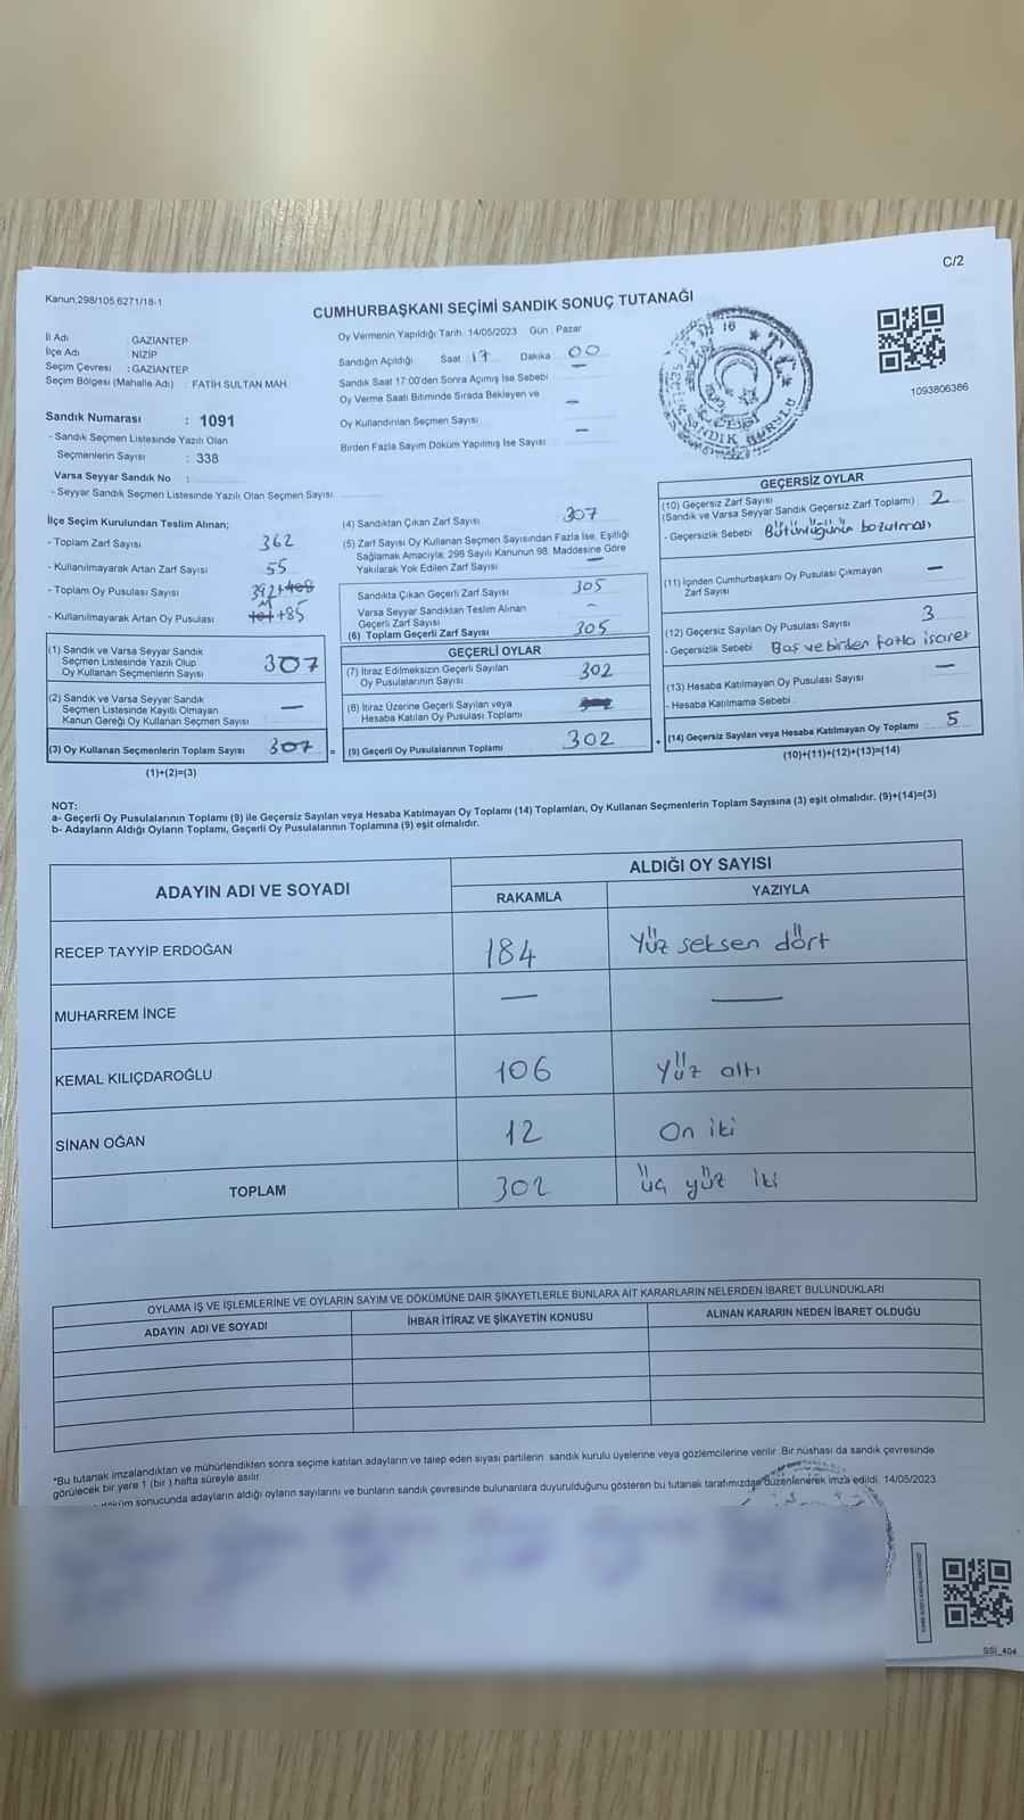 C/2
Kanun,298/105,6271/18-1
CUMHURBAŞKANI SEÇİMİ SANDIK SONUÇ TUTANAĞI
İl Adı GAZİANTEP
İlçe Adı NİZİP
Seçim Çevresi : GAZİANTEP
Seçim Bölgesi (Mahalle Adı) : FATİH SULTAN MAH
Sandık Numarası : 1091
- Sandık Seçmen Listesinde Yazılı Olan
Seçmenlerin Sayısı : 338
Varsa Seyyar Sandık No :
- Seyyar Sandık Seçmen Listesinde Yazılı Olan Seçmen Sayısı
Oy Vermenin Yapıldığı Tarih: 14/05/2023 Gün : Pazar
Sandığın Açıldığı Saat 17 Dakika 00
Sandık Saat 17:00'den Sonra Açımış İse Sebebi —
Oy Verme Saati Bitiminde Sırada Bekleyen ve
Oy Kullandırılan Seçmen Sayısı —
Birden Fazla Sayım Döküm Yapılmış İse Sayısı —
1093806386
İlçe Seçim Kurulundan Teslim Alınan;
- Toplam Zarf Sayısı 362
- Kullanılmayarak Artan Zarf Sayısı 55
- Toplam Oy Pusulası Sayısı 392
- Kullanılmayarak Artan Oy Pusulası +85
(1) Sandık ve Varsa Seyyar Sandık
Seçmen Listesinde Yazılı Olup
Oy Kullanan Seçmenlerin Sayısı 307
(2) Sandık ve Varsa Seyyar Sandık
Seçmen Listesinde Kayıtlı Olmayan
Kanun Gereği Oy Kullanan Seçmen Sayısı —
(3) Oy Kullanan Seçmenlerin Toplam Sayısı 307 =
(1)+(2)=(3)
(4) Sandıktan Çıkan Zarf Sayısı 307
(5) Zarf Sayısı Oy Kullanan Seçmen Sayısından Fazla İse, Eşitliği
Sağlamak Amacıyla, 298 Sayılı Kanunun 98. Maddesine Göre
Yakılarak Yok Edilen Zarf Sayısı —
Sandıkta Çıkan Geçerli Zarf Sayısı 305
Varsa Seyyar Sandıktan Teslim Alınan
Geçerli Zarf Sayısı -
(6) Toplam Geçerli Zarf Sayısı 305
GEÇERLİ OYLAR
(7) İtiraz Edilmeksizin Geçerli Sayılan
Oy Pusulalarının Sayısı 302
(8) İtiraz Üzerine Geçerli Sayılan veya
Hesaba Katılan Oy Pusulası Toplamı
(9) Geçerli Oy Pusulalarının Toplamı 302 +
GEÇERSİZ OYLAR
(10) Geçersiz Zarf Sayısı
(Sandık ve Varsa Seyyar Sandık Geçersiz Zarf Toplamı) 2
- Geçersizlik Sebebi Bütünlüğünün bozulması
(11) İçinden Cumhurbaşkanı Oy Pusulası Çıkmayan
Zarf Sayısı —
(12) Geçersiz Sayılan Oy Pusulası Sayısı 3
- Geçersizlik Sebebi Boş ve birden fazla işaret
(13) Hesaba Katılmayan Oy Pusulası Sayısı —
- Hesaba Katılmama Sebebi
(14) Geçersiz Sayılan veya Hesaba Katılmayan Oy Toplamı 5
(10)+(11)+(12)+(13)=(14)
NOT:
a- Geçerli Oy Pusulalarının Toplamı (9) ile Geçersiz Sayılan veya Hesaba Katılmayan Oy Toplamı (14) Toplamları, Oy Kullanan Seçmenlerin Toplam Sayısına (3) eşit olmalıdır. (9)+(14)=(3)
b- Adayların Aldığı Oyların Toplamı, Geçerli Oy Pusulalarının Toplamına (9) eşit olmalıdır.
ADAYIN ADI VE SOYADI
ALDIĞI OY SAYISI
RAKAMLA YAZIYLA
RECEP TAYYİP ERDOĞAN 184 Yüz seksen dört
MUHARREM İNCE — —
KEMAL KILIÇDAROĞLU 106 Yüz altı
SİNAN OĞAN 12 On iki
TOPLAM 302 üç yüz iki
OYLAMA İŞ VE İŞLEMLERİNE VE OYLARIN SAYIM VE DÖKÜMÜNE DAİR ŞİKAYETLERLE BUNLARA AİT KARARLARIN NELERDEN İBARET BULUNDUKLARI
ADAYIN ADI VE SOYADI İHBAR İTİRAZ VE ŞİKAYETİN KONUSU ALINAN KARARIN NEDEN İBARET OLDUĞU
*Bu tutanak imzalandıktan ve mühürlendikten sonra seçime katılan adayların ve talep eden siyasi partilerin sandık kurulu üyelerine veya gözlemcilerine verilir. Bir nüshası da sandık çevresinde
görülecek bir yere 1 (bir) hafta süreyle asılır.
döküm sonucunda adayların aldığı oyların sayılarını ve bunların sandık çevresinde bulunanlara duyurulduğunu gösteren bu tutanak tarafımızdan düzenlenerek imza edildi. 14/05/2023
SSİ_404